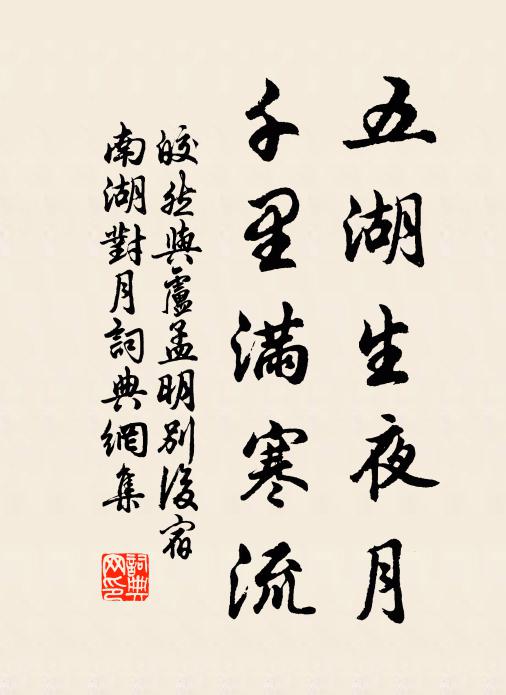 五湖生夜月
千里滿寒流
皎然與盧孟明別後宿
南湖對月詞典網集
詞典
网印